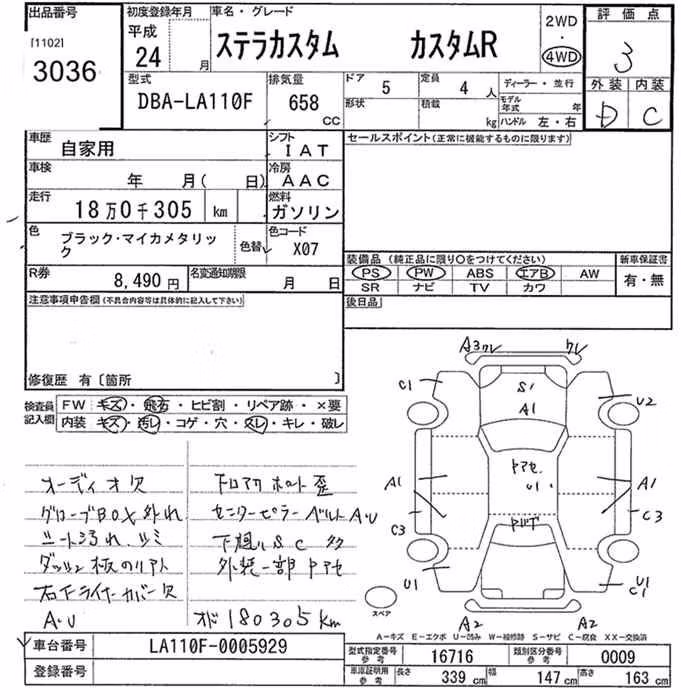 出品番号 初度登録年月 車名・グレード 2WD 評価点
[1102] 平成
3036 24 月 ステラカスタム カスタムR 4WD 3
型式 排気量 ドア 定員 ディーラー・並行 外装 内装
DBA-LA110F 658 CC 5 4 人 モデル年式 年 D C
形状 積載 kg ハンドル 左・右
車歴 シフト セールスポイント(正常に機能するものに限ります)
自家用 IAT
車検 冷房
年 月( 日) AAC
走行 燃料
18万0千305 km ガソリン
色 色替 色コード
ブラック・マイカメタリック X07
装備品(純正品に限り○をつけてください) 新車保証書
R券 名変通知期限 PS PW ABS エアB AW 有・無
8,490円 月 日 SR ナビ TV カワ
注意事項申告欄(不具合内容等は具体的に記入して下さい) 後日品
修復歴 有〔箇所 〕
検査員記入欄 FW キズ・飛石・ヒビ割・リペア跡・×要
内装 キズ・汚レ・コゲ・穴・スレ・キレ・破レ
オーディオ欠 下回アワ ホ 歪
グローブBOX外れ センターピラー ベルトA・U
シート汚れ、シミ 下廻りSC 多
ダッシュ板のリアト 外装一部トアセ
右下ライナーカバー欠
A・U オド180305km
A3 クレ クレ
C1 S1 U2
A1
A1 トアセ A1
U1
C3 C3
U1 U1
C1
スペア A2 A2
A-キズ E-エクボ U-凹み W-補修跡 S-サビ C-腐食 XX-交換済
車台番号 LA110F-0005929 型式指定番号参考 16716 類別区分番号参考 0009
登録番号 車庫証明用参考 長さ 339 cm 幅 147 cm 高さ 163 cm